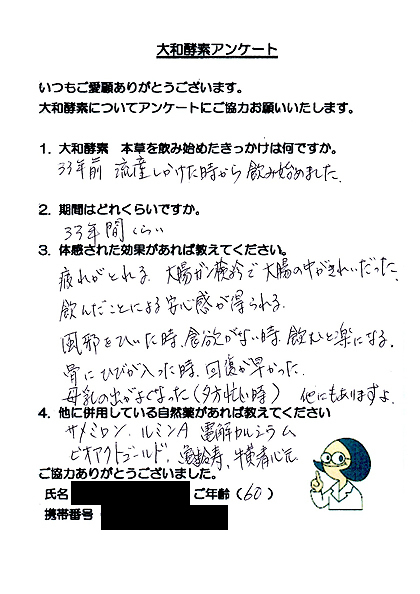 大和酵素アンケート
いつもご愛願ありがとうございます。
大和酵素についてアンケートにご協力お願いいたします。
1. 大和酵素 本草を飲み始めたきっかけは何ですか。
33年前 流産しかけた時から飲み始めました。
2. 期間はどれくらいですか。
33年間くらい
3. 体感された効果があれば教えてください。
疲れがとれる。大腸ガン検診で大腸の中がきれいだった。
飲んだことによる安心感が得られる。
風邪をひいた時、食欲がない時、飲むと楽になる。
骨にひびが入った時、回復が早かった。
母乳の出がよくなった(夕方忙しい時) 他にもありますよ。
4. 他に併用している自然薬があれば教えてください
サメミロン、ルミンA 電解カルシウム
ビオアクトゴールド、 牛黄清心元
ご協力ありがとうございました。
氏名 ご年齢(60)
携帯番号